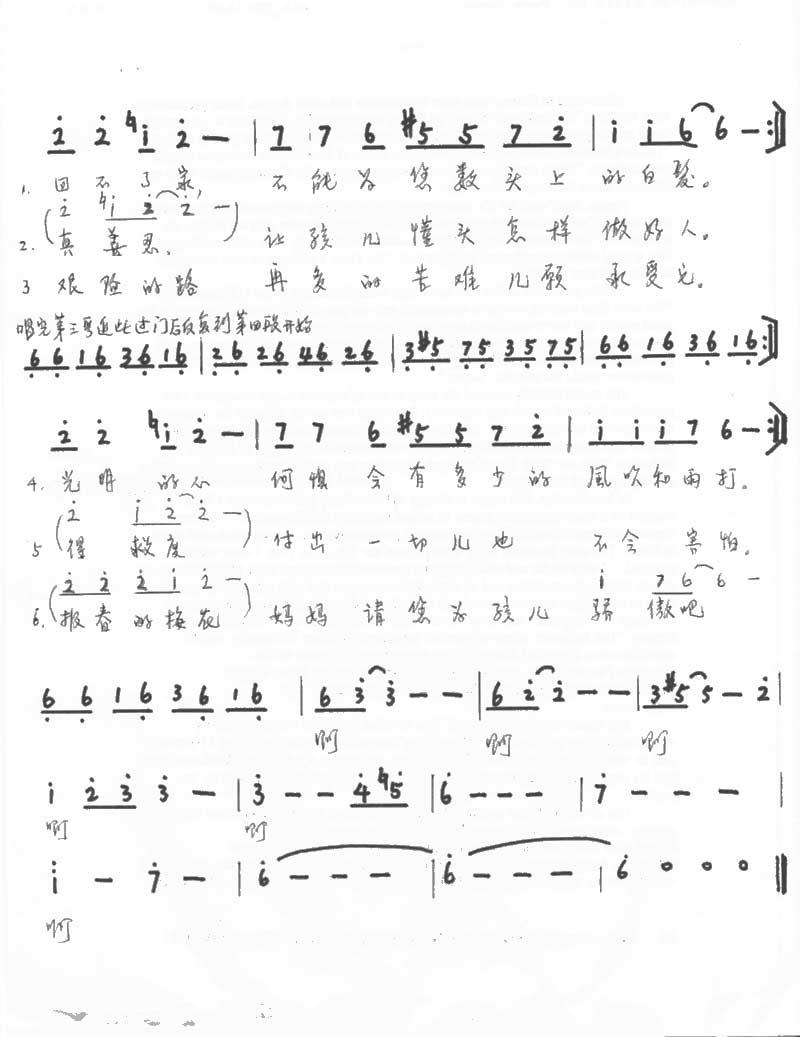 2̇ 2̇ ♮1̇ 2̇ — | 7 7 6 #5 5 7 2̇ | 1̇ 1̇ 6 6 — :‖
1. 回不了家, 不能为您数头上的白髮。
(2̇ ♮1̇ 2̇ 2̇ —)
2. 真善忍. 让孩儿懂头怎样做好人。
3 艰险的路 再多的苦难儿愿承受它。
唱完第三弯进此过门后反复到第四段开始
6̣ 6̣ 1 6̣ 3 6̣ 1 6̣ | 2 6̣ 2 6̣ 4 6̣ 2 6̣ | 3 #5̣ 7̣ 5̣ 3 5̣ 7̣ 5̣ | 6̣ 6̣ 1 6̣ 3 6̣ 1 6̣ :‖
2̇ 2̇ ♮1̇ 2̇ — | 7 7 6 #5 5 7 2̇ | 1̇ 1̇ 1̇ 7 6 — :‖
4. 光明的心 何惧会有多少的風吹和雨打.
(2̇ 1̇ 2̇ 2̇ —)
5 得救度 付出一切儿也不会害怕.
(2̇ 2̇ 2̇ 1̇ 2̇ —) 1̇ 7 6 6 —
6. 报春的梅花 妈妈请您为孩儿骄傲吧
6̣ 6̣ 1 6̣ 3 6̣ 1 6̣ | 6 3̇ 3̇ — — | 6 2̇ 2̇ — — | 3 #5 5 — 2̇ |
啊 啊 啊
1̇ 2̇ 3̇ 3̇ — | 3̇ — — 4̇ ♮5̇ | 6̇ — — — | 7̇ — — — |
啊 啊
1̇ — 7̇ — | 6̇ — — — | 6̇ — — — | 6̇ 0 0 0 ‖
啊